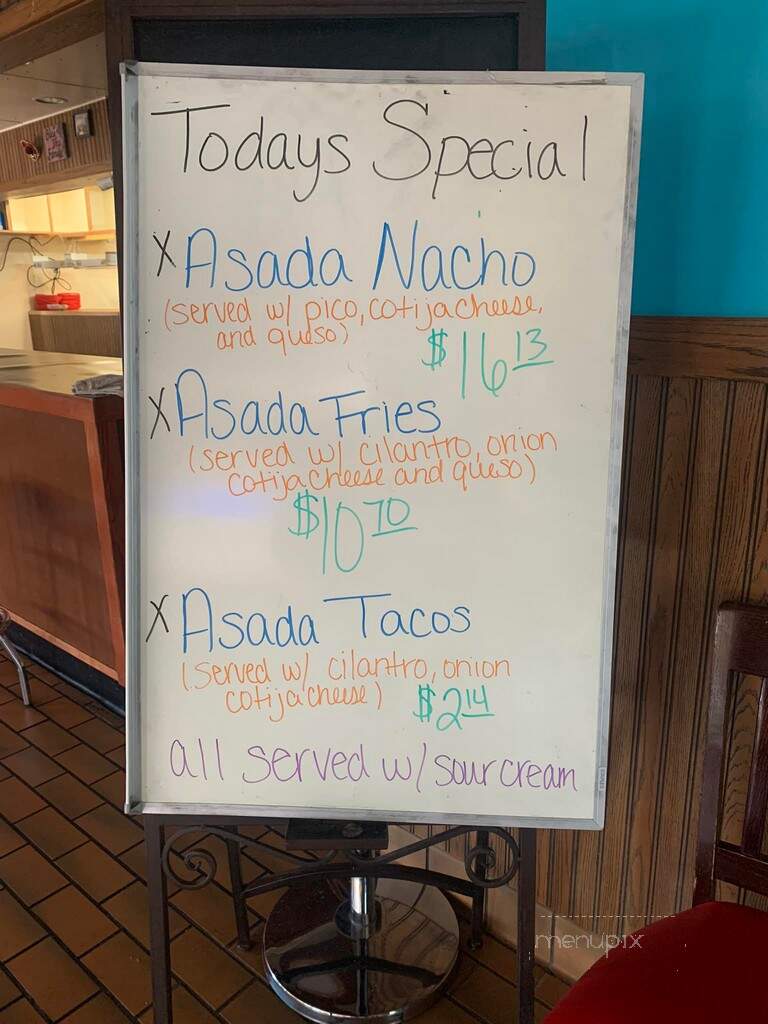 Todays Special
X Asada Nacho
(served w/ pico, cotija cheese,
and queso)
$16 13
X Asada Fries
(served w/ cilantro, onion
cotija cheese and queso)
$10 70
X Asada Tacos
(served w/ cilantro, onion
cotija cheese)
$2 14
all served w/ sour cream
menupix